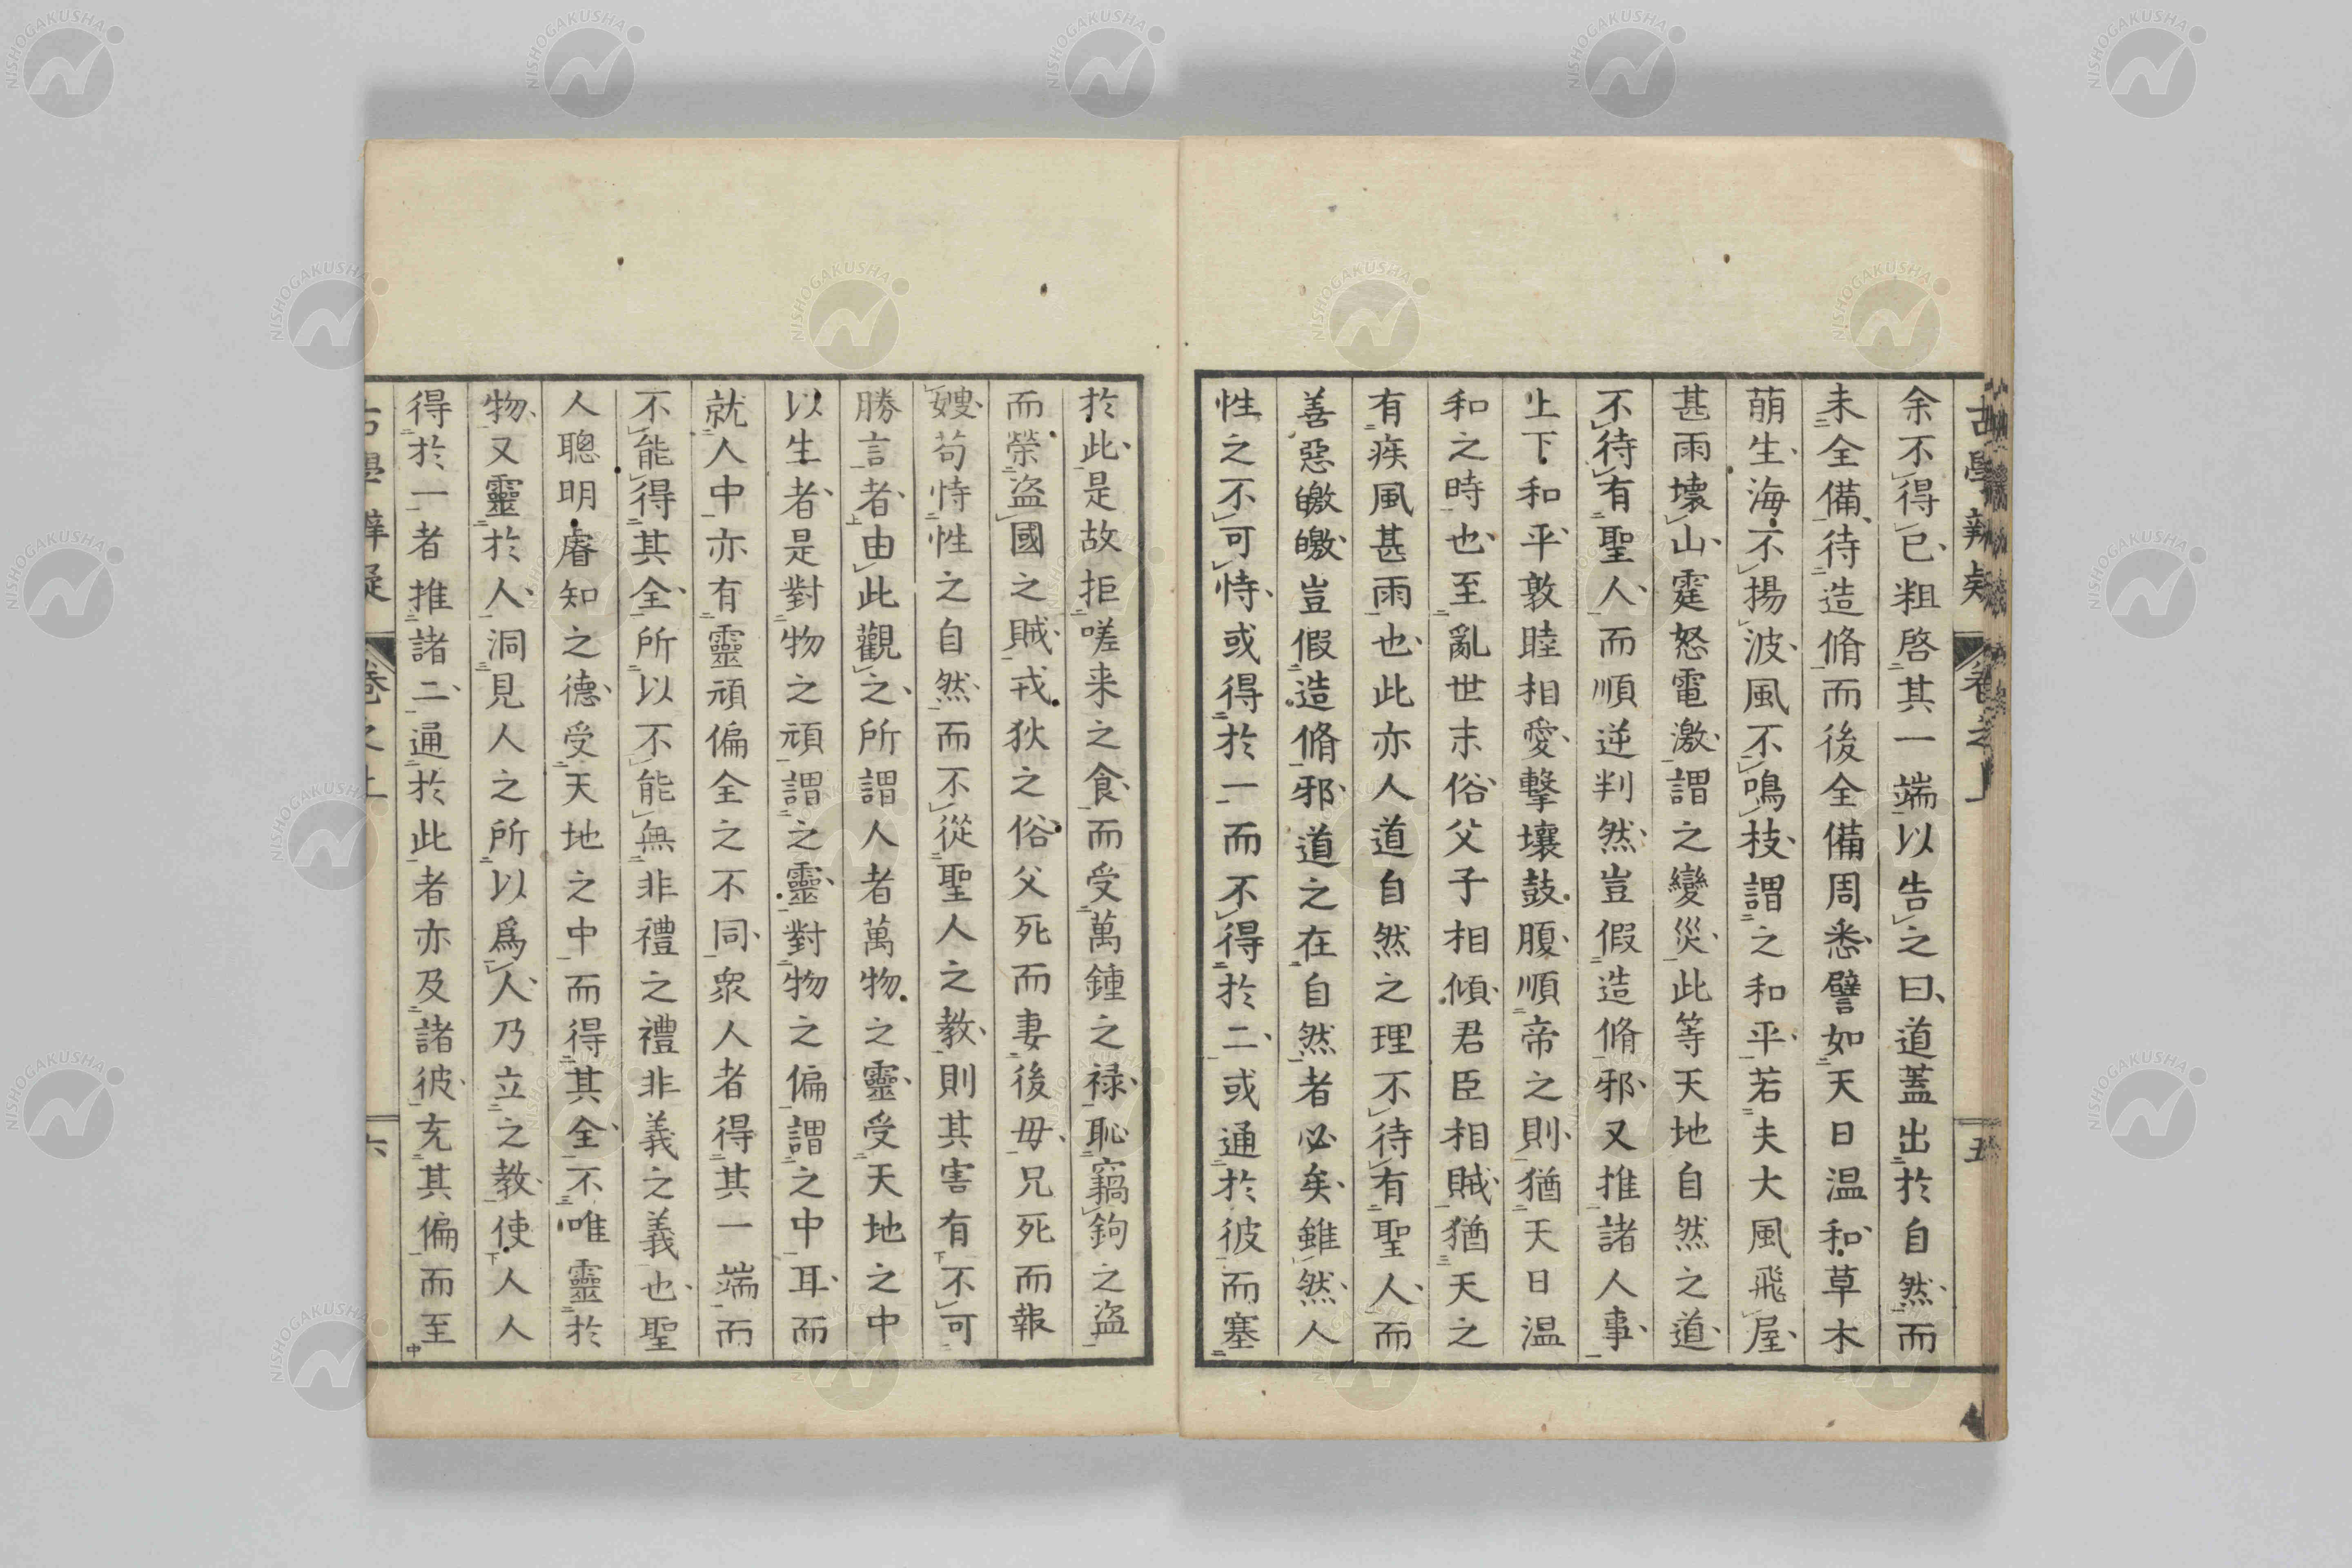 余不得已粗啓其一端以告之曰道蓋出於自然而
未全備待造脩而後全備周悉譬如天日温和草木
萠生海不揚波風不鳴枝謂之和平若夫大風飛屋
甚雨壊山霆怒電激謂之變災此等天地自然之道
不待有聖人而順逆判然豈假造脩邪又推諸人事
上下和平敦睦相愛擊壤鼓腹順帝之則猶天日温
和之時也至亂世末俗父子相傾君臣相賊猶天之
有疾風甚雨也此亦人道自然之理不待有聖人而
善惡皦皦豈假造脩邪道之在自然者必矣雖然人
性之不可恃或得於一而不得於二或通於彼而塞
於此是故拒嗟来之食而受萬鍾之禄恥竊鉤之盗
而榮盗國之賊戎狄之俗父死而妻後毋兄死而報
嫂苟恃性之自然而不從聖人之教則其害有不可
勝言者由此觀之所謂人者萬物之靈受天地之中
以生者是對物之頑謂之靈對物之偏謂之中耳而
就人中亦有靈頑偏全之不同衆人者得其一端而
不能得其全所以不能無非禮之禮非義之義也聖
人聰明睿知之德受天地之中而得其全不唯靈於
物又靈於人洞見人之所以爲人乃立之教使人人
得於一者推諸二通於此者亦及諸彼充其偏而至
NISHOGAKUSHA